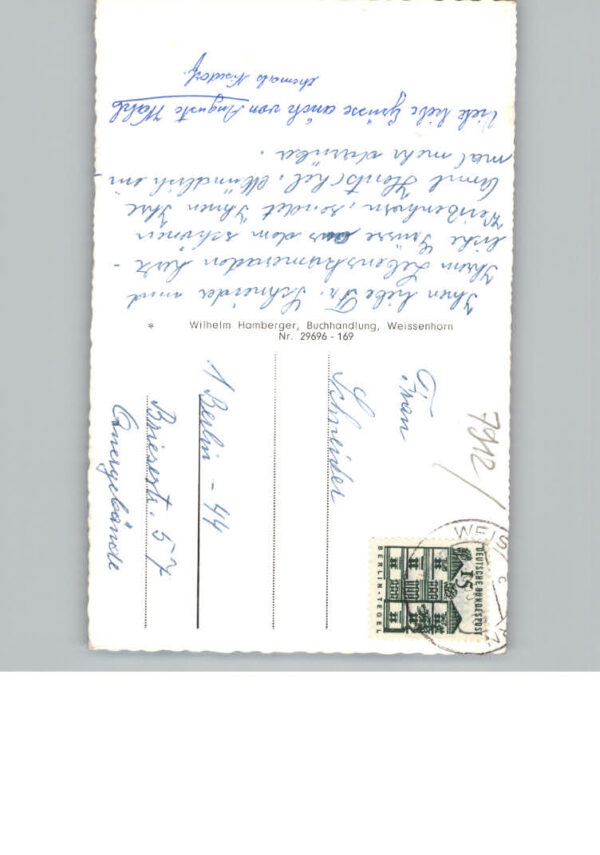 Ihnen liebe Fr. Schneider und
Ihrem Lebenskameraden herz-
liche Grüsse aus dem schönen
Weißenhorn, sendet Ihnen Ihre
Hentschel. Mündlich ein-
mal mehr darüber.
Viele liebe Grüsse auch von Auguste Wahl
ehemals
Wilhelm Hamberger, Buchhandlung, Weissenhorn
Nr. 29696 - 169
7912/
Frau
Schneider
1 Berlin - 44
Briesestr. 57
Quergebäude
DEUTSCHE BUNDESPOST
15
BERLIN-TEGEL
WEIS